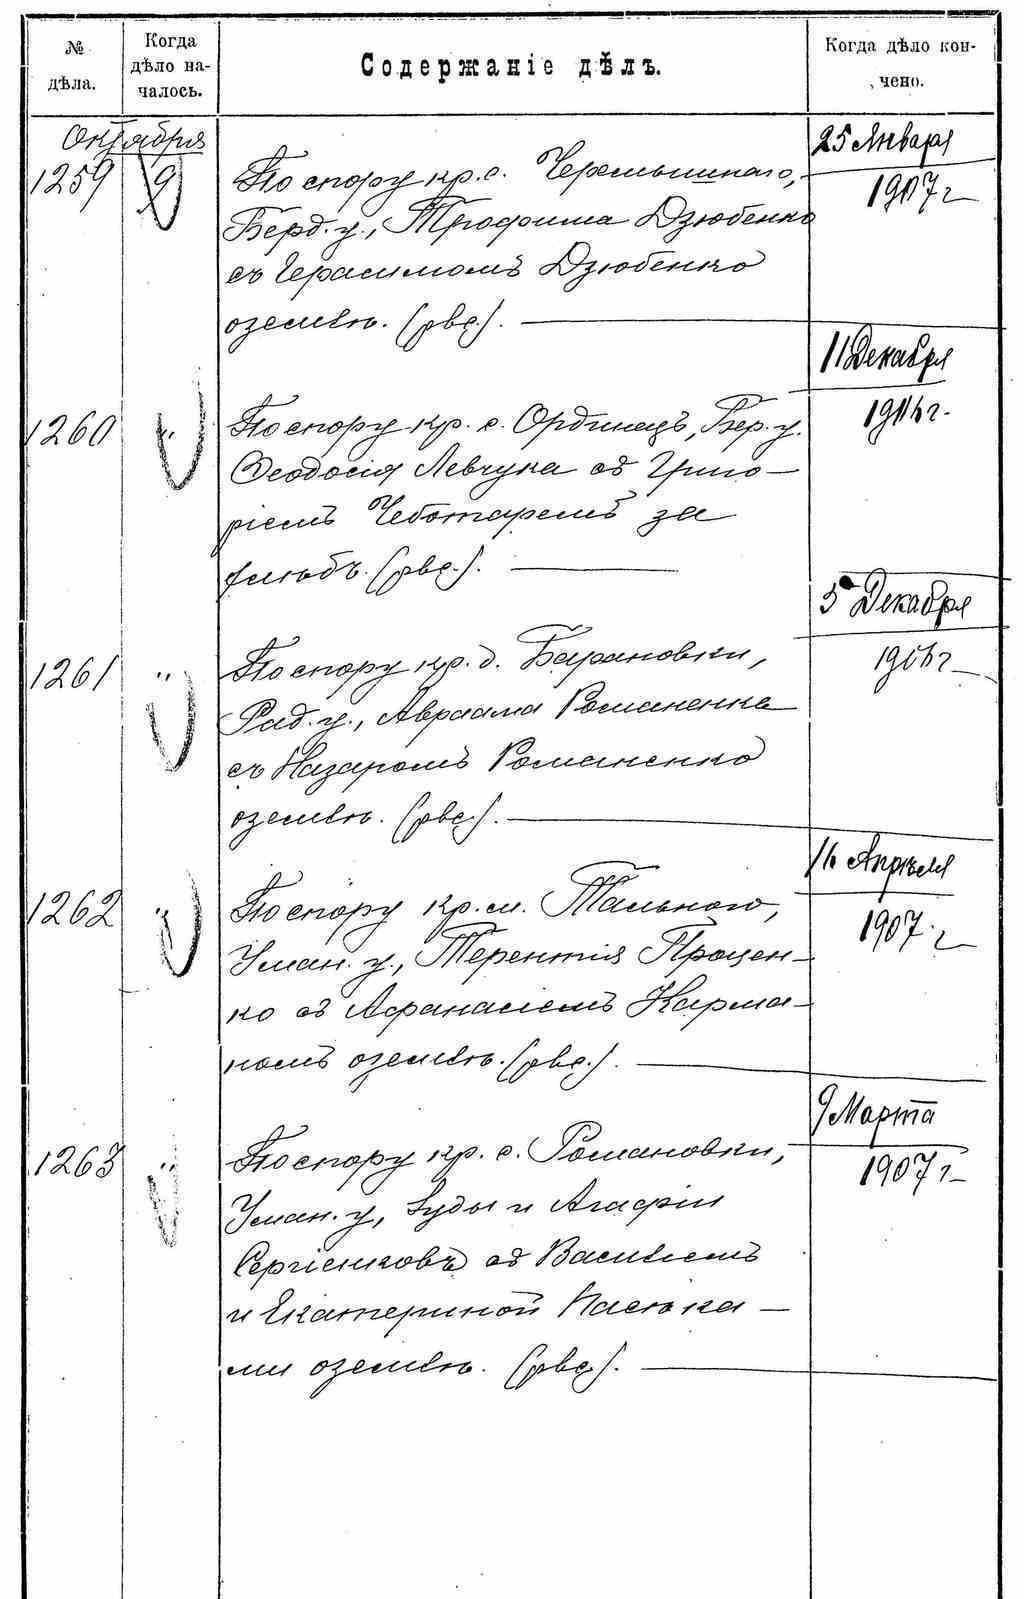 № дѣла.
Когда дѣло на-
чалось.
Содержаніе дѣлъ.
Когда дѣло кон-
чено.
Октября
1259 9 По спору кр. с. Черемышнаго,
Берд. у., Трофима Дзюбенко
съ Герасимомъ Дзюбенко
о землѣ. (рвс.).
25 Января
1907 г
1260 " По спору кр. с. Ординецъ, Бер. у.
Ѳеодосія Левчука съ Григо-
ріемъ Чеботаремъ за
(рвс.).
11 Декабря
1906 г.
1261 " По спору кр. д. Барановки,
Рад. у., Авраама Романенка
съ Назаромъ Романенко
о землѣ. (рвс.).
5 Декабря
1906 г
1262 " По спору кр. м. Тального,
Уман. у., Терентія Процен-
ко съ Афанасіемъ Карма-
номъ о землѣ. (рвс.).
16 Апрѣля
1907 г
1263 " По спору кр. с. Романовки,
Уман. у, Іуды и Агафіи
Сергіенковъ съ Василіемъ
и Екатериной Пасѣка-
ми о землѣ. (рвс.).
9 Марта
1907 г